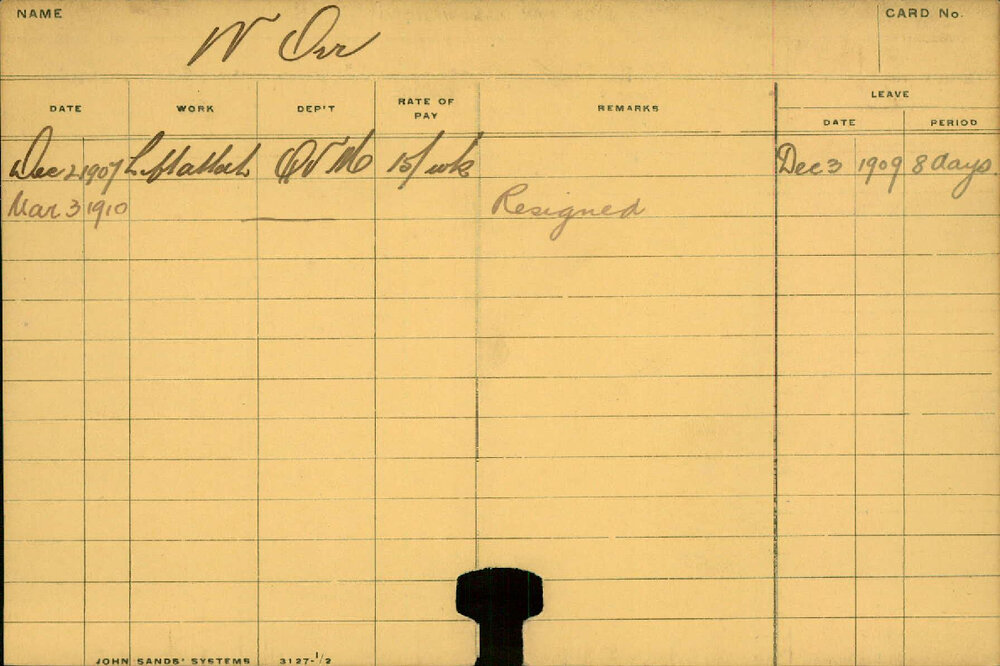 NAME
W Orr
CARD No.
DATE WORK DEP'T RATE OF PAY REMARKS LEAVE
DATE PERIOD
Dec 2 1907 Lift attach QVM 15/ wk Dec 3 1909 8 days.
Mar 3 1910 Resigned
JOHN SANDS' SYSTEMS 3127-1/2